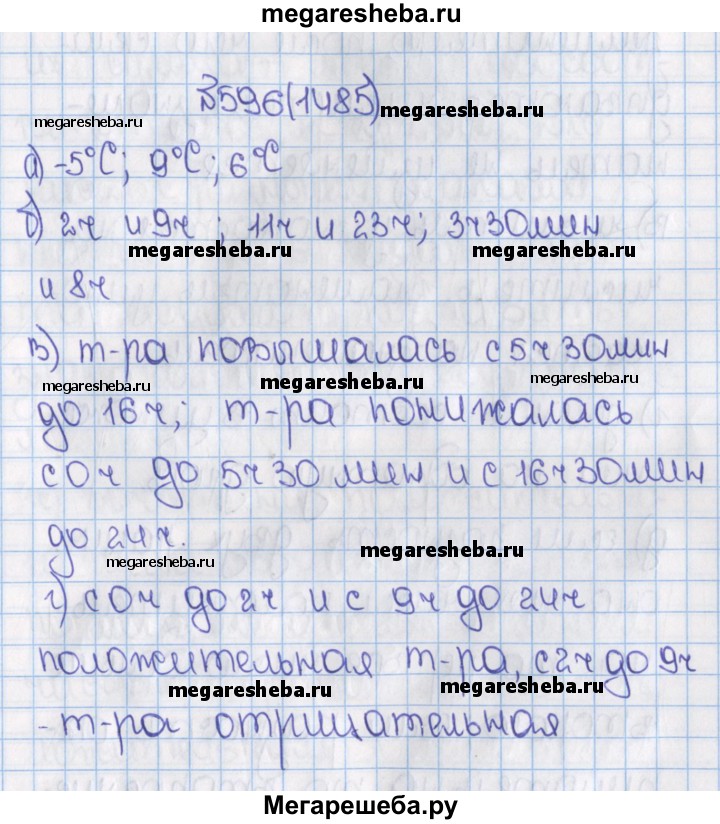 megaresheba.ru
№596(1485) megaresheba.ru
megaresheba.ru
а) -5°С; 9°С; 6°С
б) 2ч и 9ч ; 11ч и 23ч; 3ч30мин
megaresheba.ru megaresheba.ru
и 8ч
в) т-ра повышалась с 5ч 30мин
megaresheba.ru megaresheba.ru megaresheba.ru
до 16ч; т-ра понижалась
с 0ч до 5ч30 мин и с 16ч30мин
до 24ч. megaresheba.ru
megaresheba.ru
г) с 0ч до 2ч и с 9ч до 24ч
положительная т-ра, с 2ч до 9ч
megaresheba.ru megaresheba.ru
- т-ра отрицательная
Мегарешеба.ру